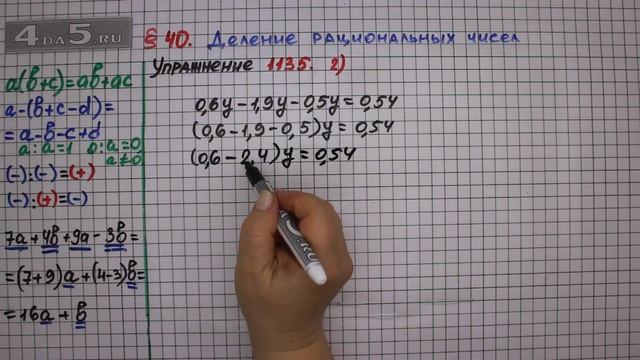 4DA5.RU
§ 40. Деление рациональных чисел
Упражнение 1135. г)
a(b+c)=ab+ac
a-(b+c-d)=
=a-b-c+d
a:a=1 0:a=0
a≠0
(-):(-)=(+)
(-):(+)=(-)
7a+4b+9a-3b=
=(7+9)a+(4-3)b=
=16a+b
0,6y-1,9y-0,5y=0,54
(0,6-1,9-0,5)y=0,54
(0,6-2,4)y=0,54